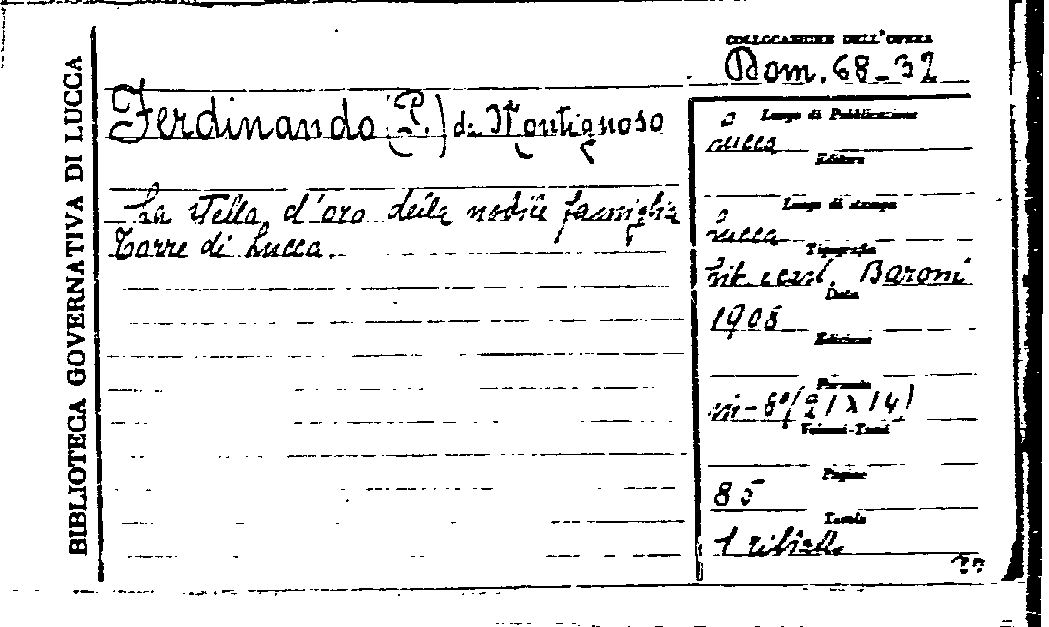 BIBLIOTECA GOVERNATIVA DI LUCCA
COLLOCAZIONE DELL'OPERA
Dom. 68-32
Ferdinando (P.) da Montignoso
La stella d'oro della nobile famiglia
Torre di Lucca.
Luogo di Pubblicazione
Lucca
Editore
Luogo di stampa
Lucca
Tipografia
Tit. e cart. Baroni
Data
1908
Edizione
Formato
in-8º (21 x 14)
Volumi-Tomi
Pagine
85
Tavole
1